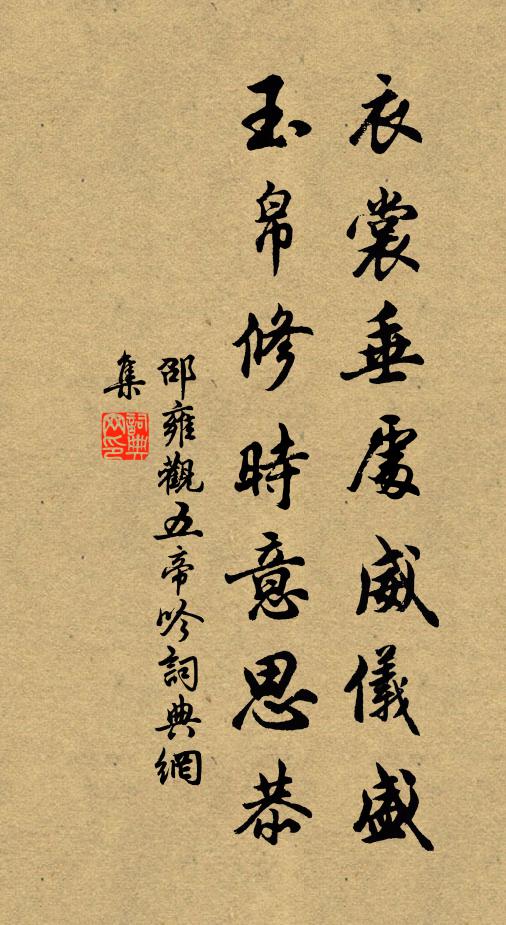 衣裳垂處威儀盛
玉帛修時意思恭
邵雍觀五帝吟詞典網
集
詞典
网印